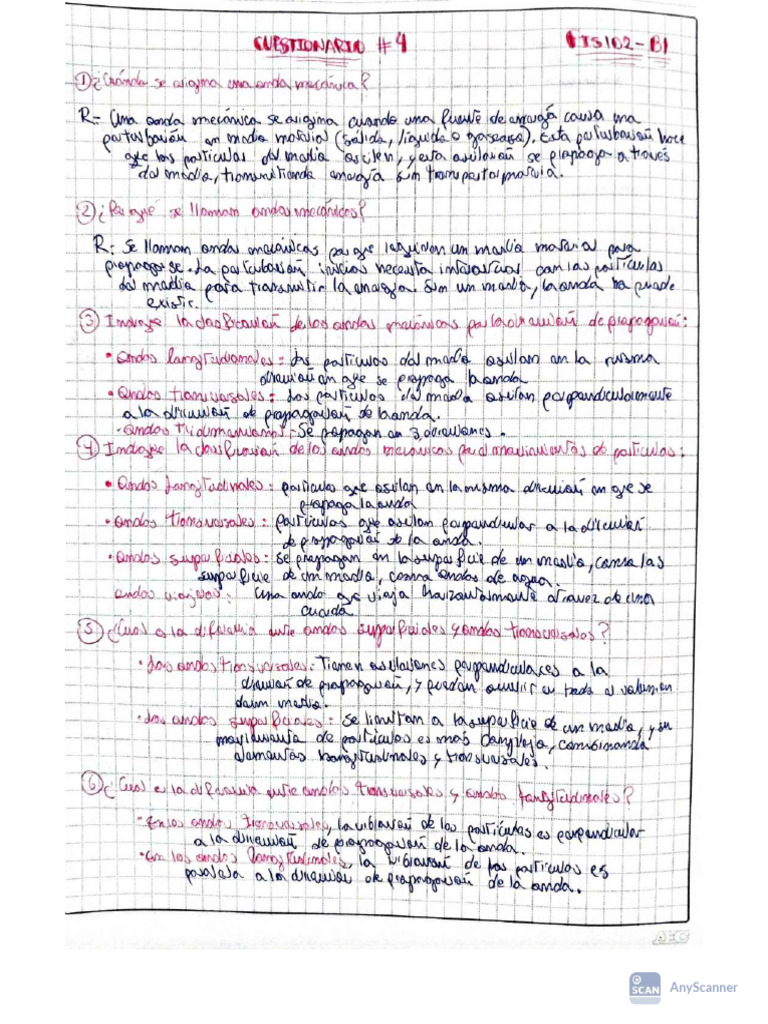 CUESTIONARIO # 4 FIS102-B1
① ¿Cuándo se origina una onda mecánica?
R:- Una onda mecánica se origina cuando una fuente de energía causa una
perturbación en medio material (sólido, líquido o gaseoso). Esta perturbación hace
que las partículas del medio oscilen, y esta oscilación se propaga a través
del medio, transmitiendo energía sin transportar materia.
② ¿Por qué se llaman ondas mecánicas?
R:- Se llaman ondas mecánicas porque requieren un medio material para
propagarse. La perturbación inicial necesita interactuar con las partículas
del medio para transmitir la energía. Sin un medio, la onda no puede
existir.
③ Indique la clasificación de las ondas mecánicas por la dirección de propagación:
• Ondas longitudinales: Las partículas del medio oscilan en la misma
dirección en que se propaga la onda
• Ondas transversales: Las partículas del medio oscilan perpendicularmente
a la dirección de propagación de la onda.
- Ondas tridimensional:- Se propagan en 3 direcciones.
④ Indique la clasificación de las ondas mecánicas por el movimiento de partículas:
• Ondas longitudinales: partículas que oscilan en la misma dirección en que se
propaga la onda
• Ondas transversales: Partículas que oscilan perpendicular a la dirección
de propagación de la onda.
• Ondas superficiales: Se propagan en la superficie de un medio, como las
superficie de un medio, como ondas de agua.
ondas viajeras: Una onda que viaja horizontalmente através de una
cuerda
⑤ ¿Cual es la diferencia entre ondas superficiales y ondas transversales?
• Las ondas transversales: Tienen oscilaciones perpendiculares a la
dirección de propagación, y pueden existir en todo el volumen
de un medio.
• Las ondas superficiales: Se limitan a la superficie de un medio, y su
movimiento de partículas es más complejo, combinando
elementos longitudinales y transversales.
⑥ ¿Cual es la diferencia entre ondas transversales y ondas longitudinales?
• En las ondas transversales, la vibración de las partículas es perpendicular
a la dirección de propagación de la onda.
• En las ondas longitudinales, la vibración de las partículas es
paralela a la dirección de propagación de la onda.
AEC
SCAN AnyScanner